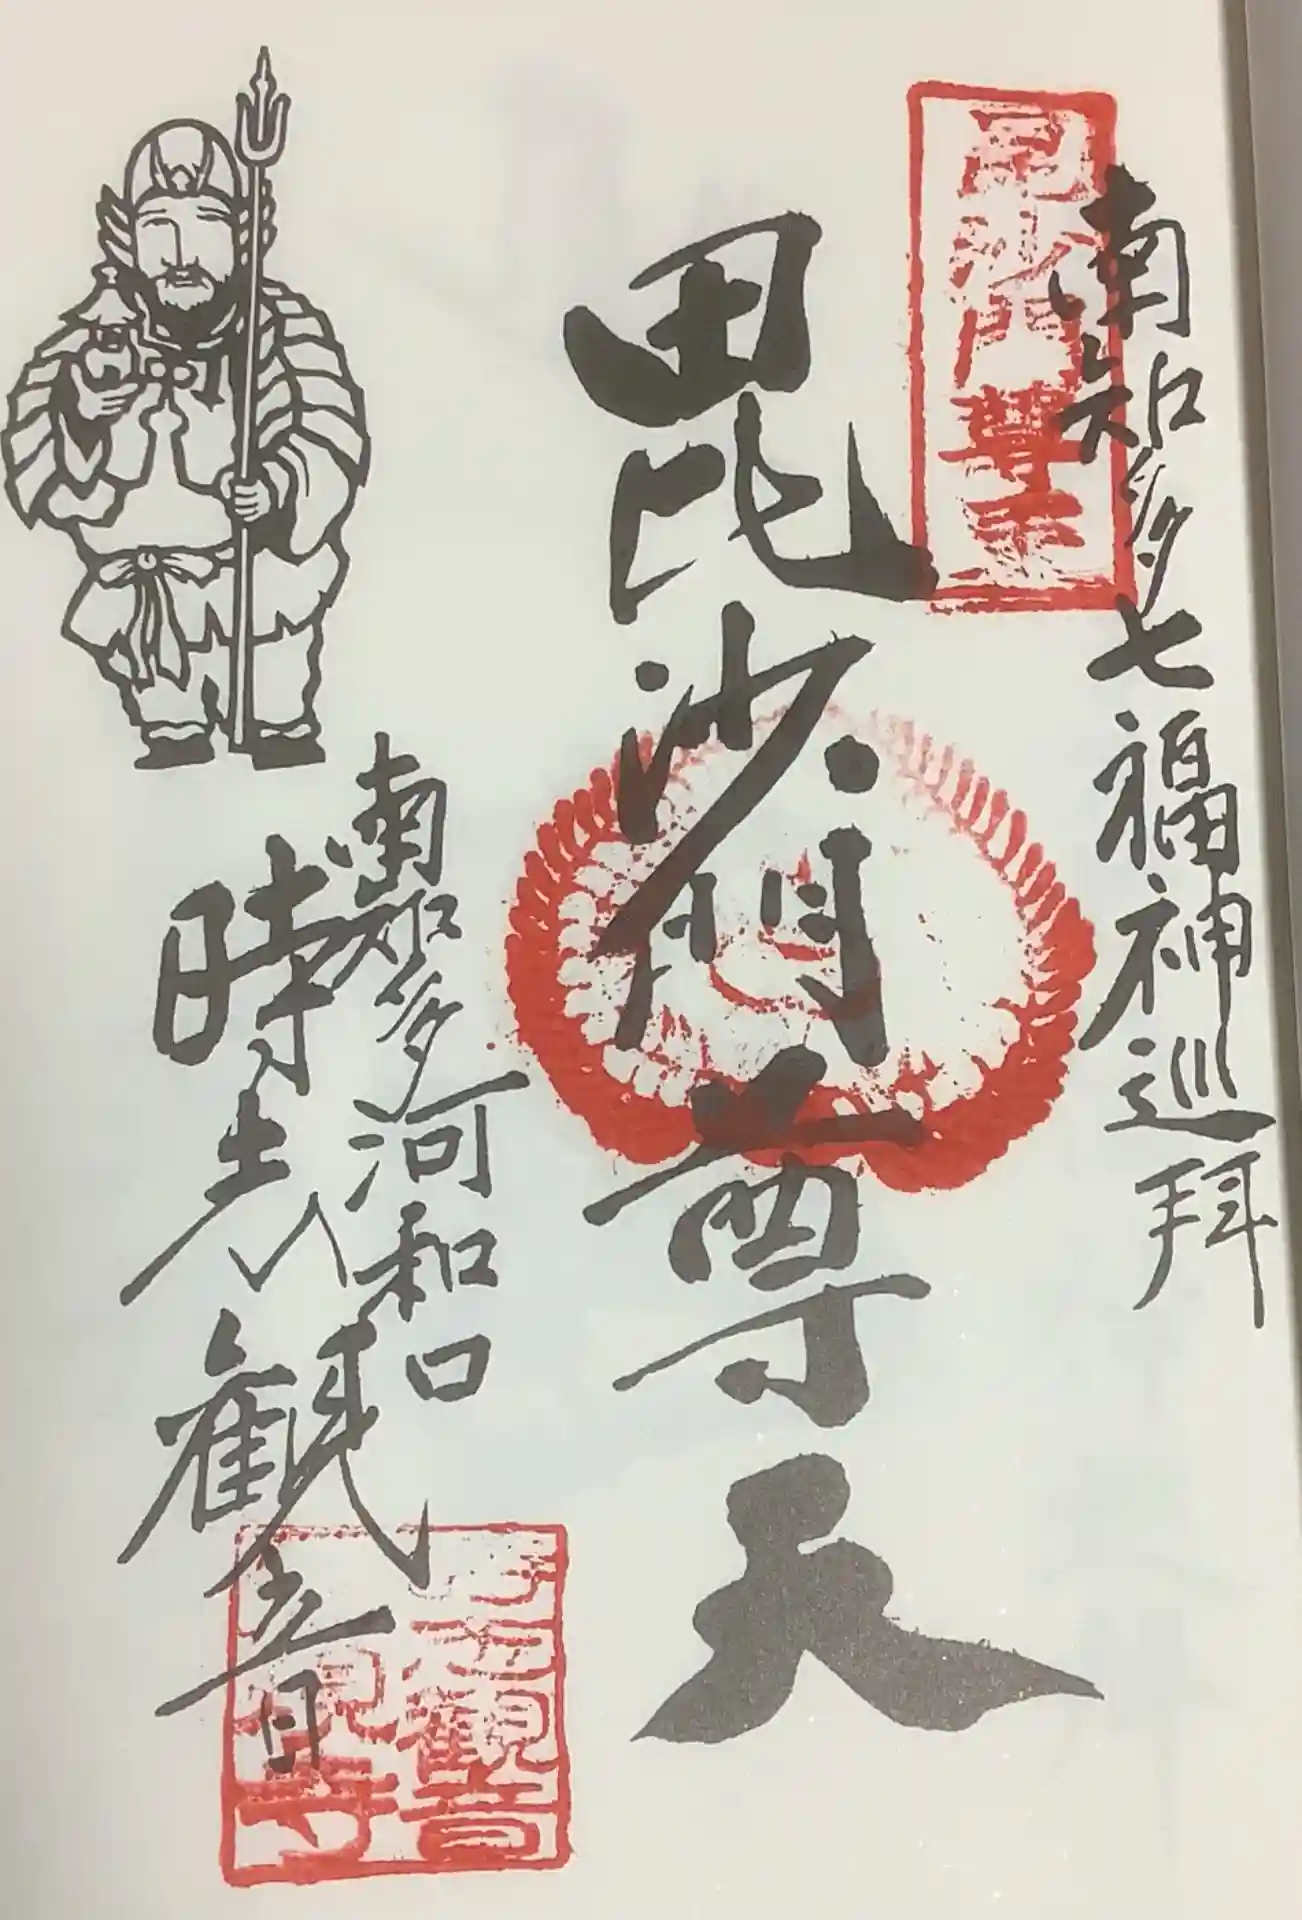 南知多七福神巡拝
毘沙門尊天
毘沙門尊天
南知多河和口
時志観音
時志観音